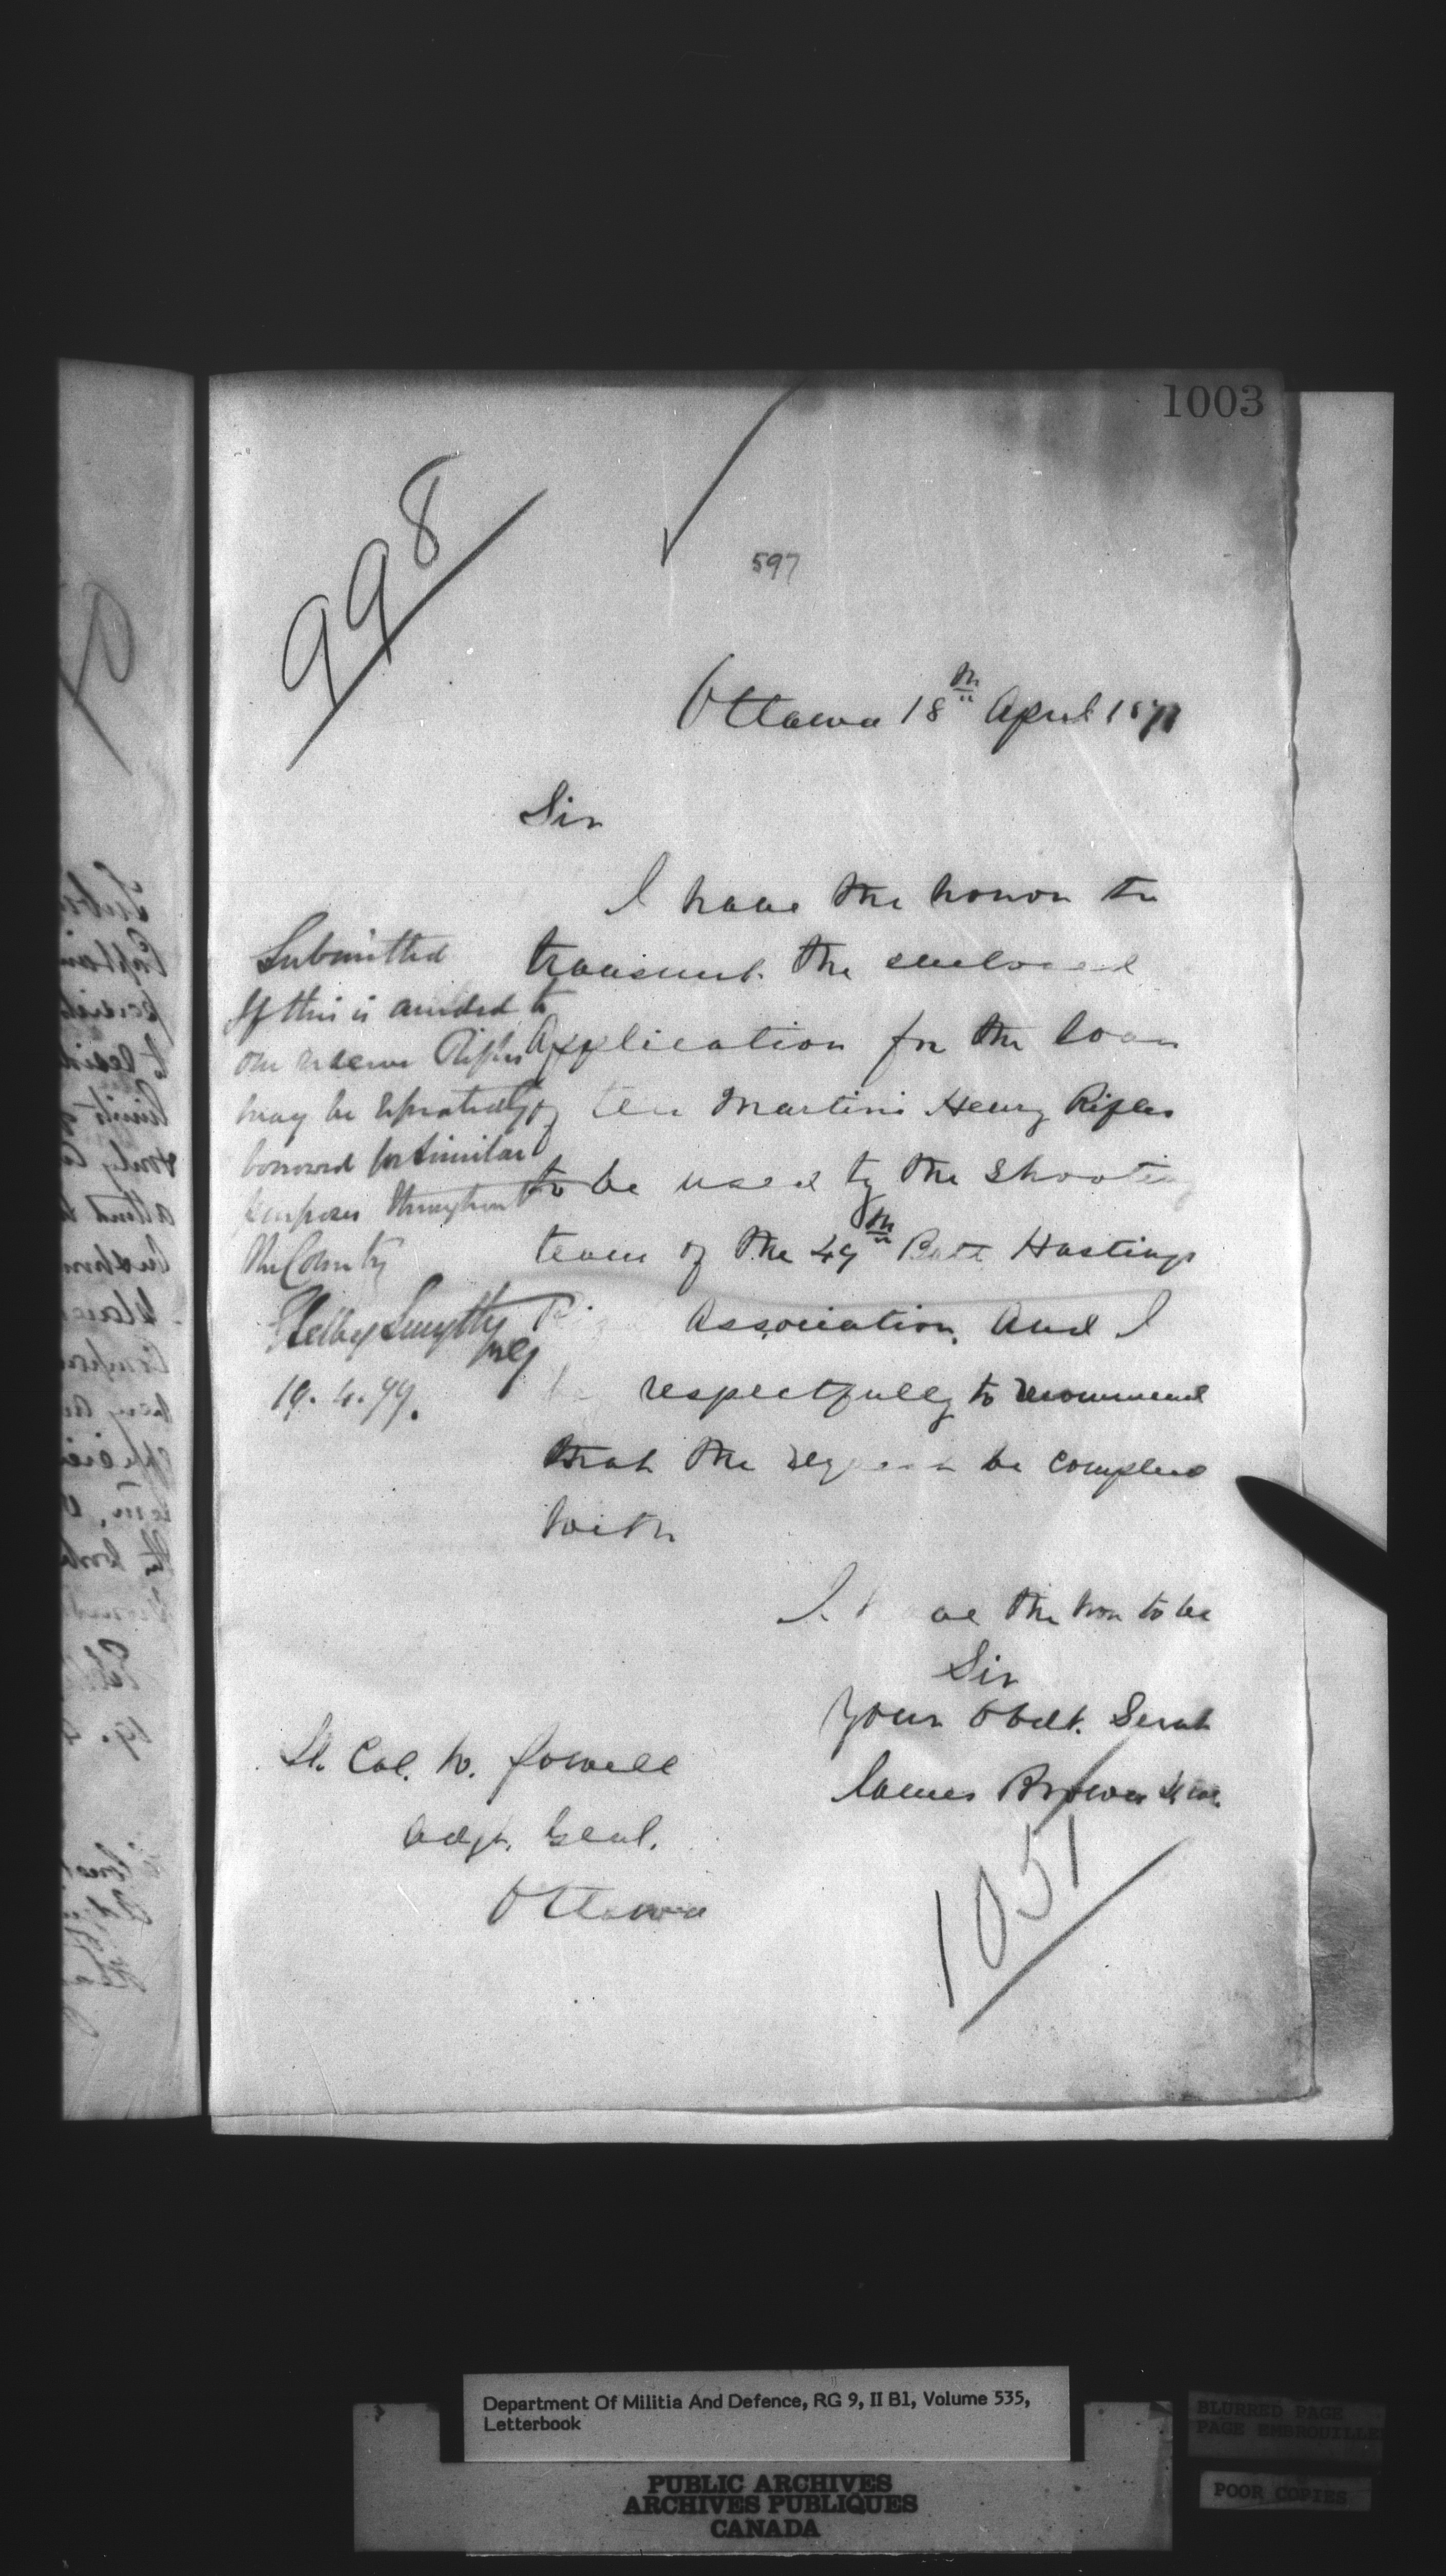 1003
998
597
Ottawa 18th April 1879
Sir
I have the honor to
transmit the enclosed
Application for the loan
of ten Martini Henry Rifles
to be used by the Shooting
team of the 49th Batt Hastings
Association, And I
respectfully to recommend
that the request be complied
with
I have the hon to be
Sir
Your Obdt. Servt
James Brown Lt Col.
Submitted
If this is acceded to
our reserve Rifles
may be repeatedly
borrowed for similar
purposes throughout
the Country
Selby Smyth
19. 4. 79.
Lt. Col. W. Powell
Adjt. Genl.
Ottawa
1051
Department Of Militia And Defence, RG 9, II B1, Volume 535,
Letterbook
PUBLIC ARCHIVES
ARCHIVES PUBLIQUES
CANADA
BLURRED PAGE
PAGE EMBROUILLEE
POOR COPIES